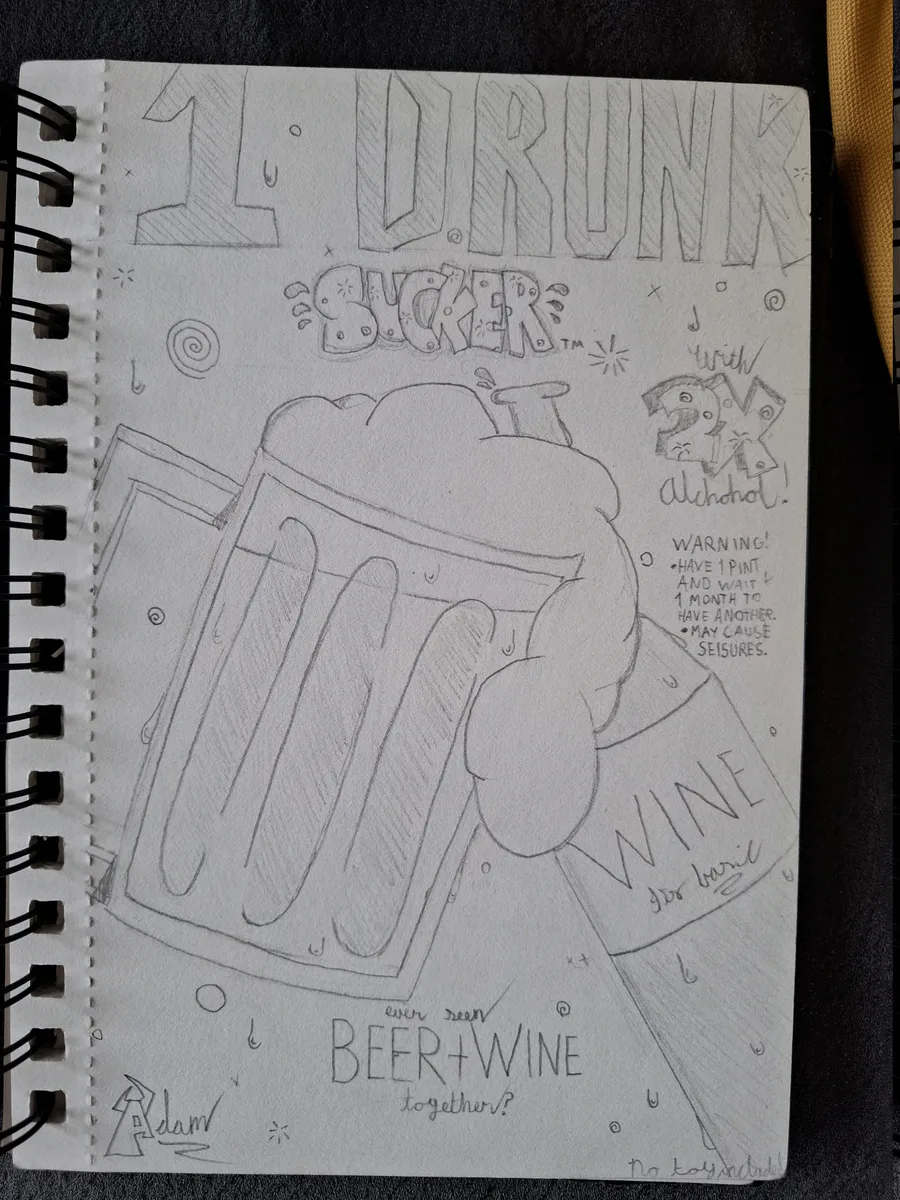 1 DRUNK
SUCKER™
with
2X
Alchohol!
WARNING!
•HAVE 1 PINT
AND WAIT
1 MONTH TO
HAVE ANOTHER.
•MAY CAUSE
SEISURES.
WINE
for basic
ever seen
BEER+WINE
together?
Adam
No toy included